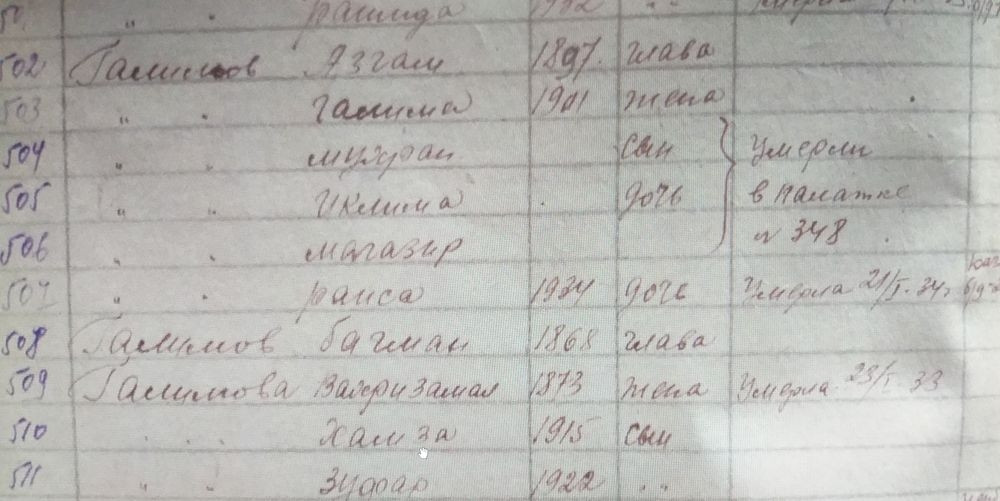 " " рашида 1932 " "
502 Галимов Язгам 1897. глава
503 " " галима 1901 жена
504 " " мухран сын умерли
505 " " Иклима дочь в палатке
506 " " магазир № 348
507 " " раиса 1934 дочь Умерла 21/I-34
508 Галимов багман 1868 глава
509 Галимова Бахризамал 1873 жена Умерла 23/I-33
510 " " Хамза 1915 сын
511 " " Зуфар 1922 " "